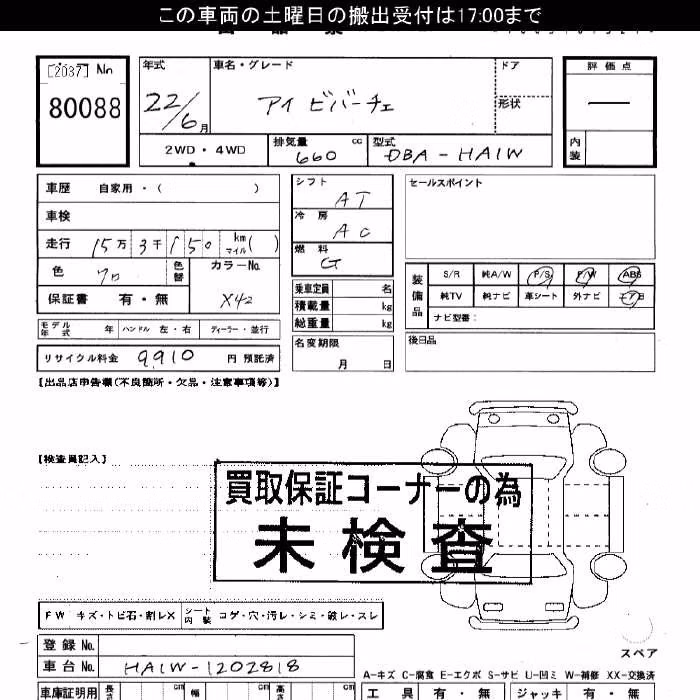 この車両の土曜日の搬出受付は17:00まで
[2037] No
80088
年式
22/6月
車名・グレード
アイ ビバーチェ
ドア
形状
評価点
—
内装
2WD・4WD
排気量
660 cc
型式
DBA-HA1W
車歴 自家用・( )
車検
走行 15万3千150 km マイル( )
色 クロ
色替
カラーNo.
X42
保証書 有・無
モデル年式 年 ハンドル 左・右 ディーラー・並行
リサイクル料金 9910 円 預託済
シフト
AT
冷房
AC
燃料
G
乗車定員 名
積載量 kg
総重量 kg
名変期限
月 日
セールスポイント
装備品
S/R 純A/W P/S P/W ABS
純TV 純ナビ 革シート 外ナビ エアB
ナビ型番:
後日品
【出品店申告欄(不良箇所・欠品・注意事項等)】
【検査員記入】
買取保証コーナーの為
未検査
FW キズ・トビ石・割レX シート内装 コゲ・穴・汚レ・シミ・破レ・スレ
登録No.
車台No. HA1W-1202818
スペア
A-キズ C-腐食 E-エクボ S-サビ U-凹ミ W-補修 XX-交換済
車庫証明用 長さ cm 幅 cm 高さ cm
工具 有・無 ジャッキ 有・無